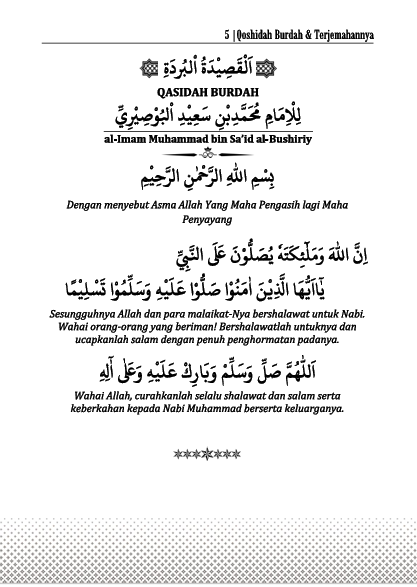 5 | Qoshidah Burdah & Terjemahannya
اَلْقَصِيْدَةُ الْبُرْدَةِ
QASIDAH BURDAH
لِلْاِمَامِ مُحَمَّدِبْنِ سَعِيْدِ الْبُوْصِيْرِيِّ
al-Imam Muhammad bin Sa'id al-Bushiriy
بِسْمِ اللهِ الرَّحْمٰنِ الرَّحِيْمِ
Dengan menyebut Asma Allah Yang Maha Pengasih lagi Maha
Penyayang
اِنَّ اللهَ وَمَلٰٓئِكَتَهٗ يُصَلُّوْنَ عَلَى النَّبِيِّ
يٰٓاَيُّهَا الَّذِيْنَ اٰمَنُوْا صَلُّوْا عَلَيْهِ وَسَلِّمُوْا تَسْلِيْمًا
Sesungguhnya Allah dan para malaikat-Nya bershalawat untuk Nabi.
Wahai orang-orang yang beriman! Bershalawatlah untuknya dan
ucapkanlah salam dengan penuh penghormatan padanya.
اَللّٰهُمَّ صَلِّ وَسَلِّمْ وَبَارِكْ عَلَيْهِ وَعَلٰى اٰلِهِ
Wahai Allah, curahkanlah selalu shalawat dan salam serta
keberkahan kepada Nabi Muhammad berserta keluarganya.